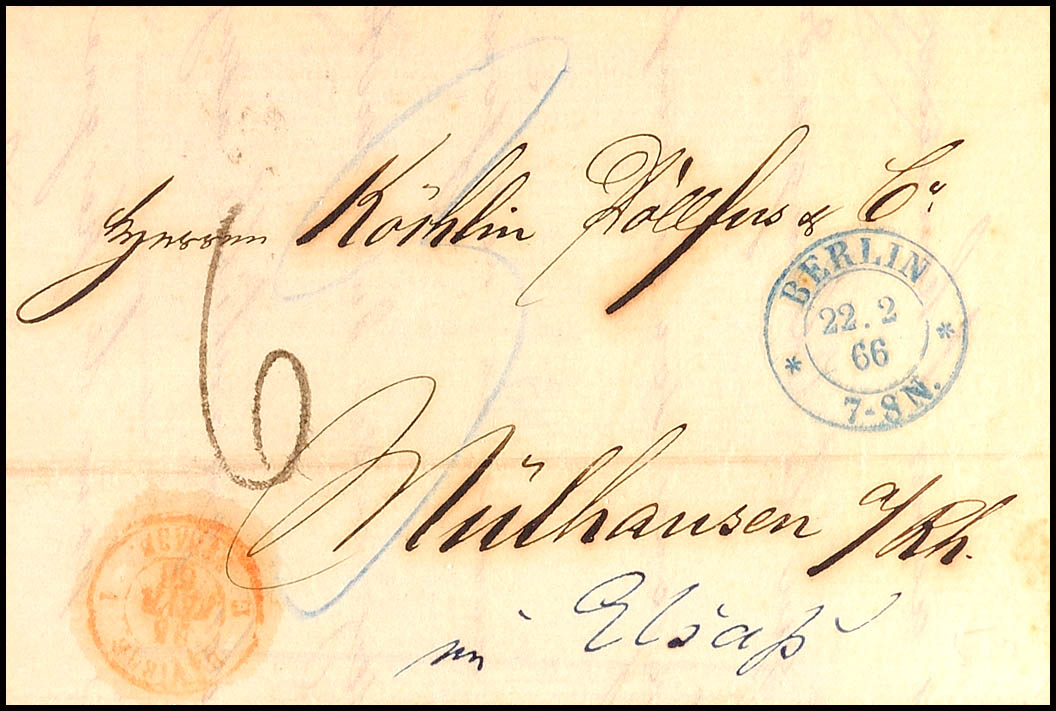 Herren Köchlin Döllfus & Co.
BERLIN
22. 2
66
7-8 N.
6
3
Mülhausen a/Rh.
im Elsaß